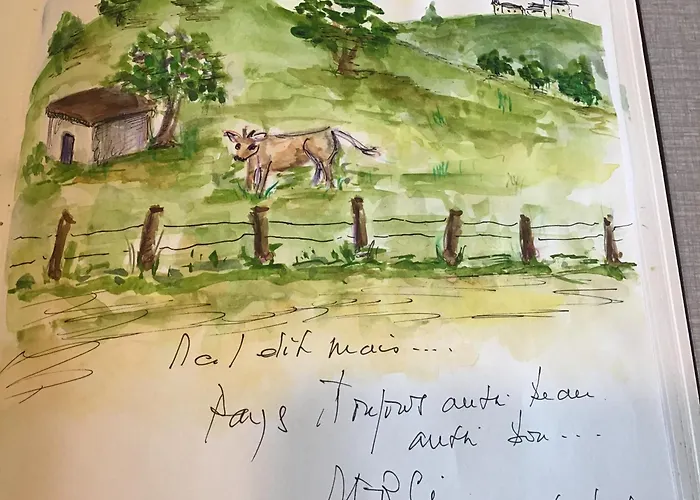 Mal dit mais....
Pays, Toujours aussi beau
aussi bon...
MERCI